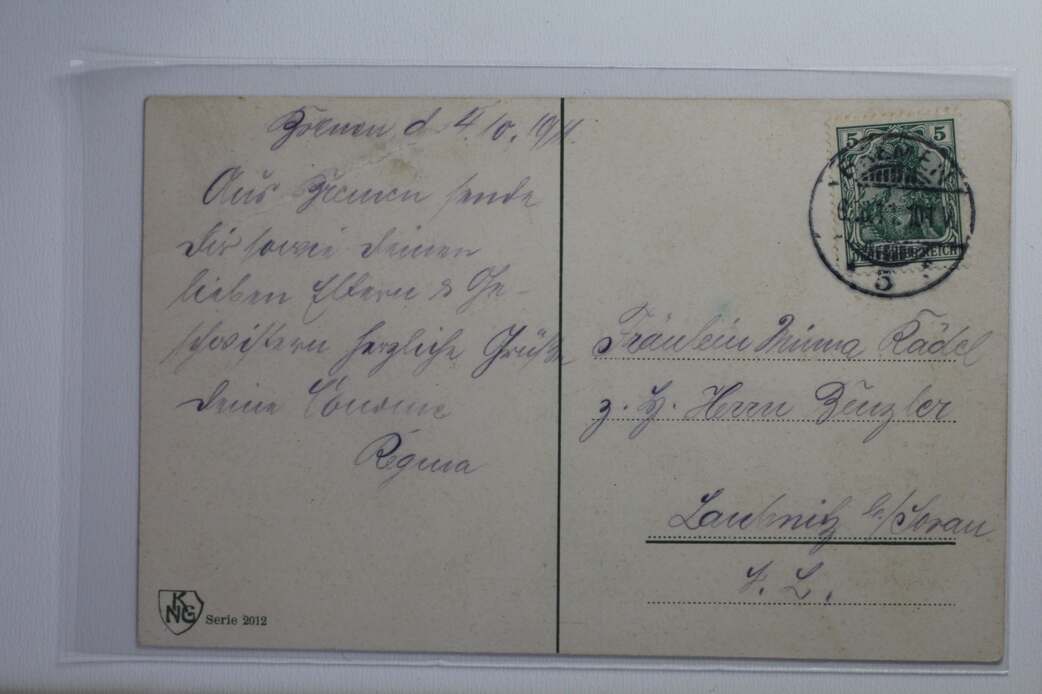 Bremen d. 4.10.1911.
Aus Bremen sende
dir sowie deinen
lieben Eltern & Ge-
schwistern herzliche Grüße
deine
Regina
5 5
BREMEN
DEUTSCHES REICH
5
Fräulein Minna Kädel
z. H. Herrn Benzler
b./Sorau
N. L.
KNG
Serie 2012